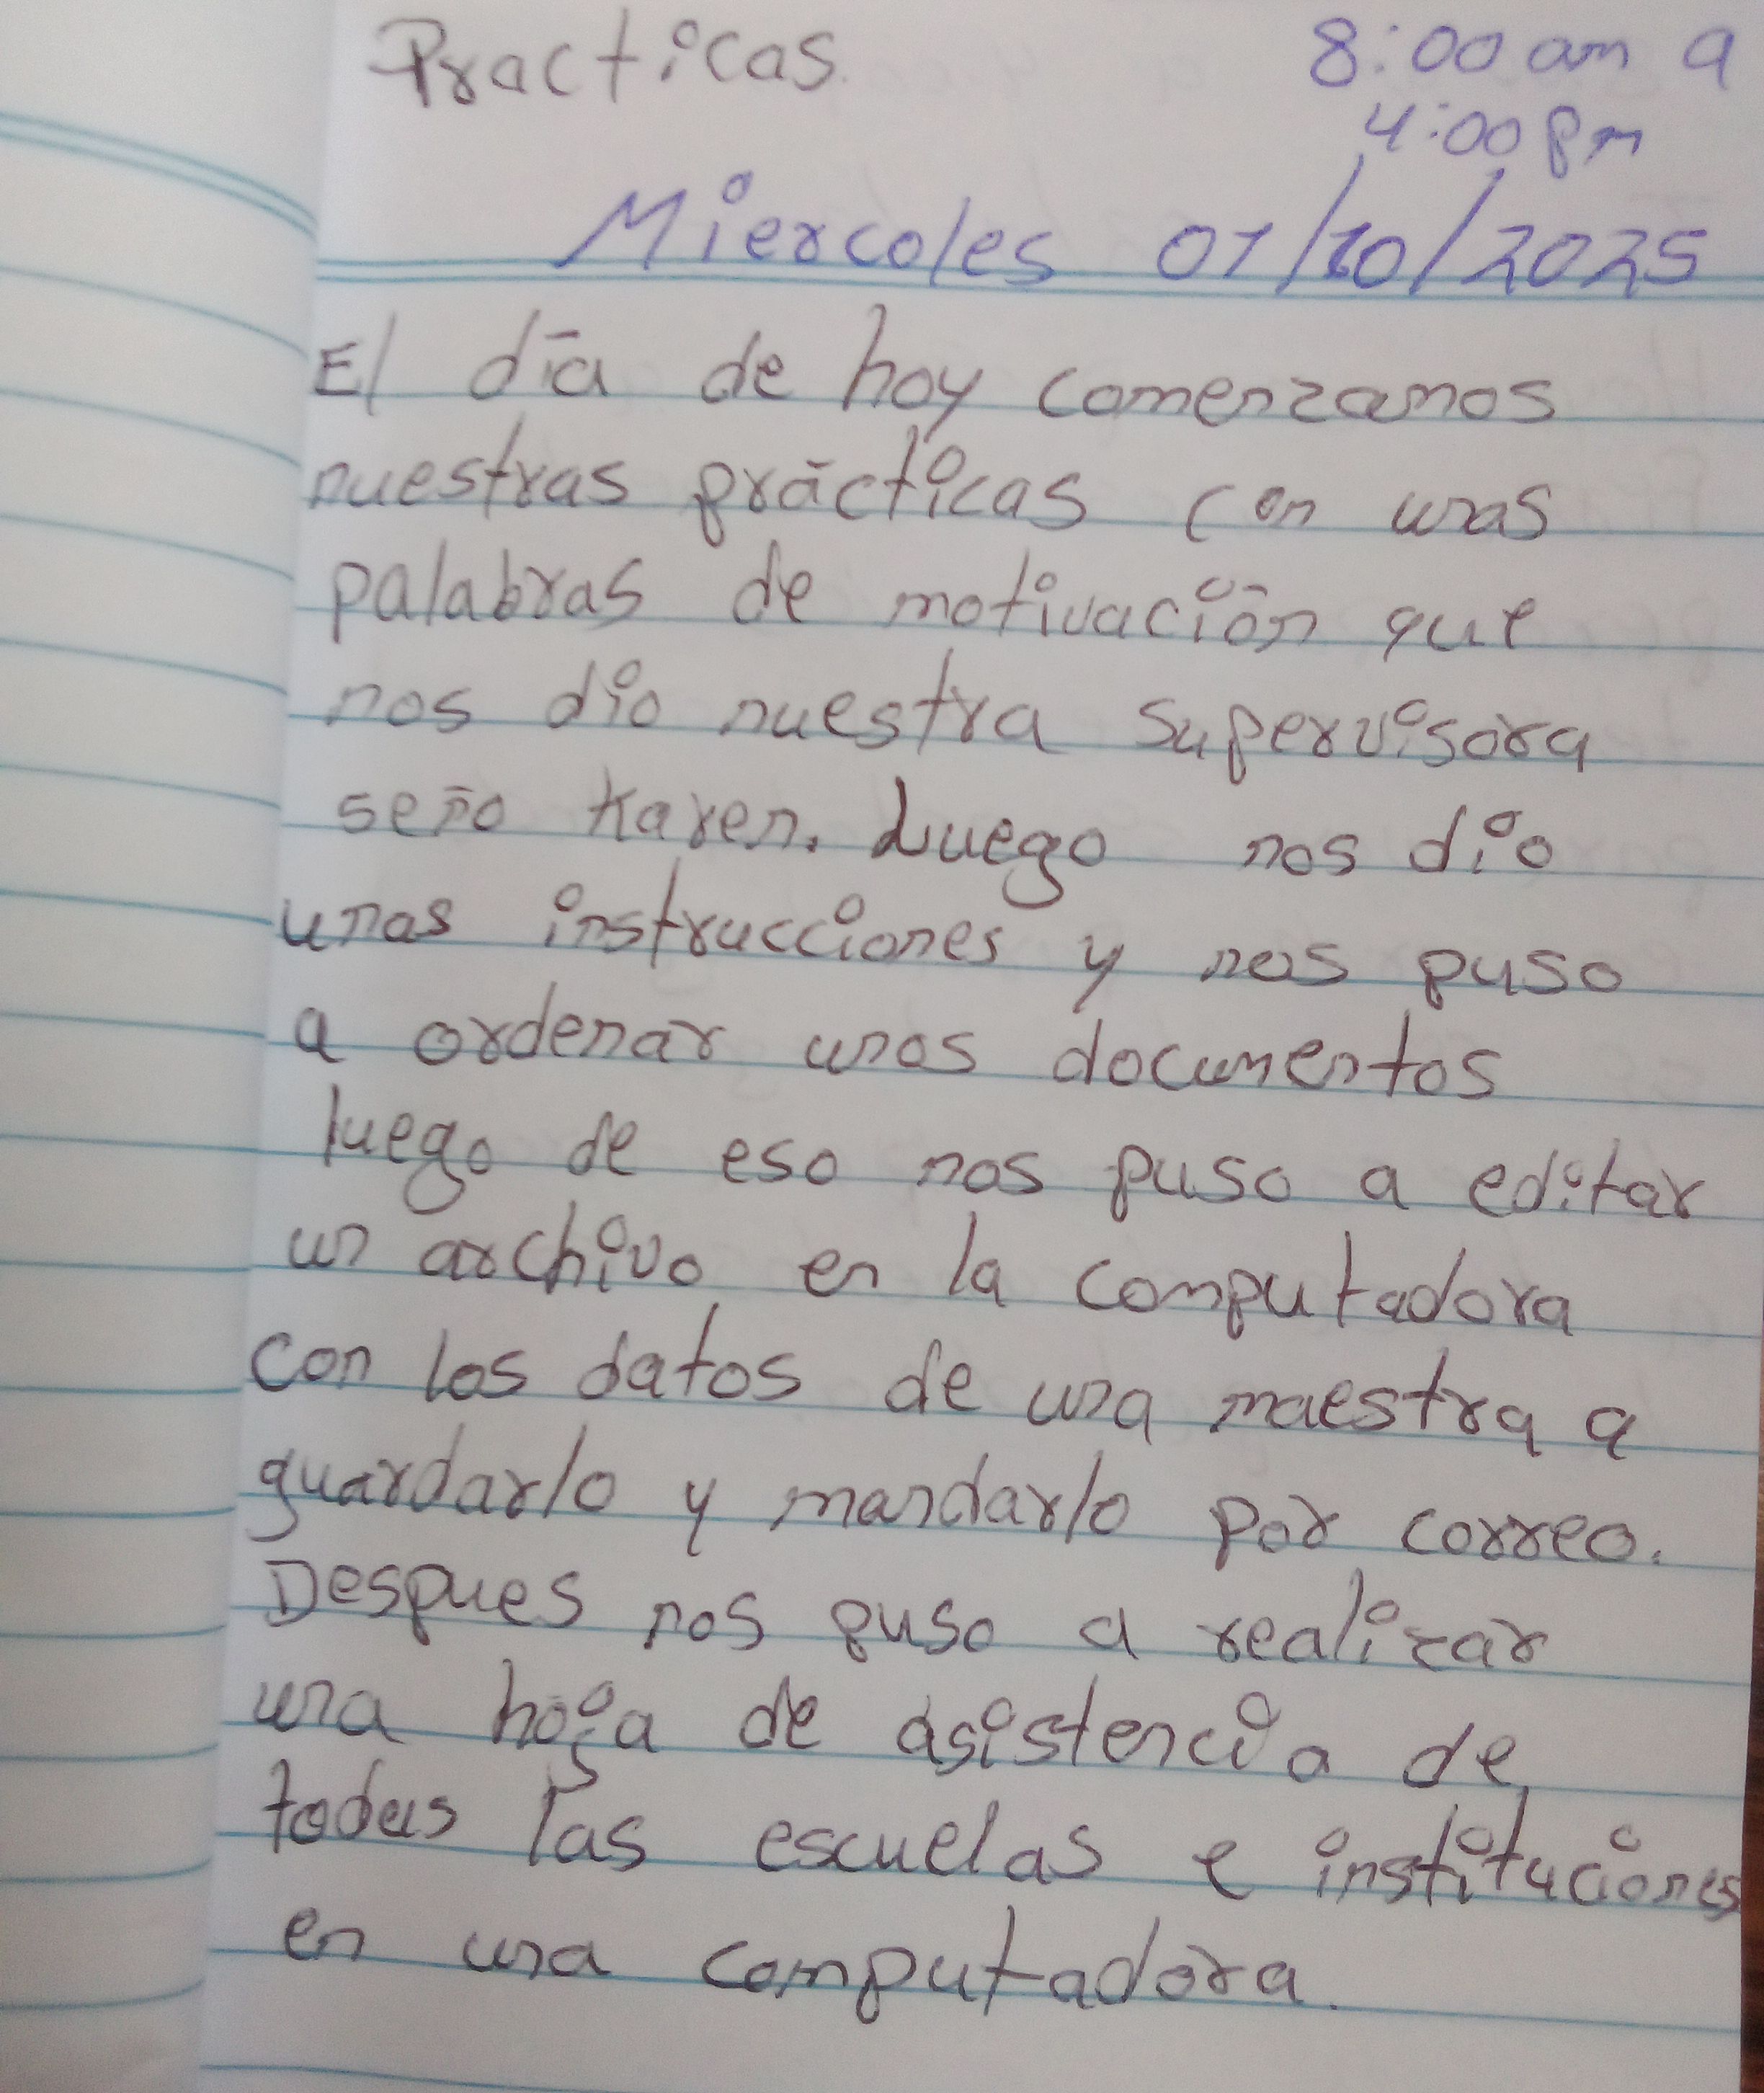 Practicas.
8:00 am a
4:00 pm
Miercoles 01/10/2025
El día de hoy comenzamos
nuestras prácticas con unas
palabras de motivación que
nos dio nuestra supervisora
seño Karen. Luego nos dio
unas instrucciones y nos puso
a ordenar unos documentos
luego de eso nos puso a editar
un archivo en la computadora
con los datos de una maestra a
guardarlo y mandarlo por correo.
Despues nos puso a realizar
una hoja de asistencia de
todas las escuelas e instituciones
en una computadora.